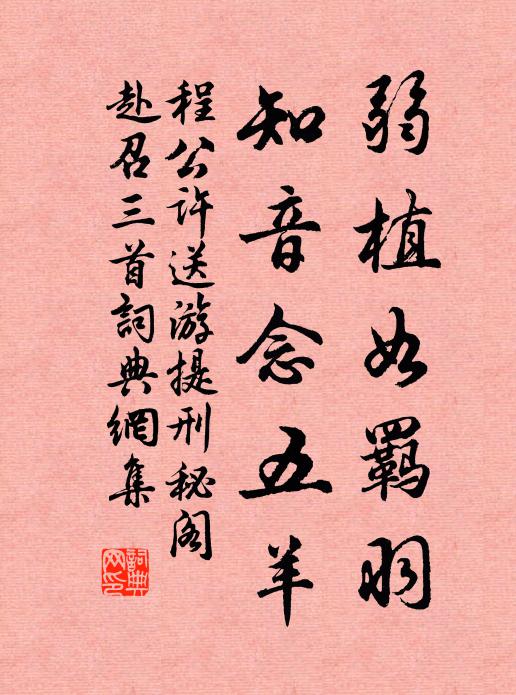 弱植如羈羽
知音念五羊
程公許送游提刑秘阁
赴召三首詞典網集
詞典网印